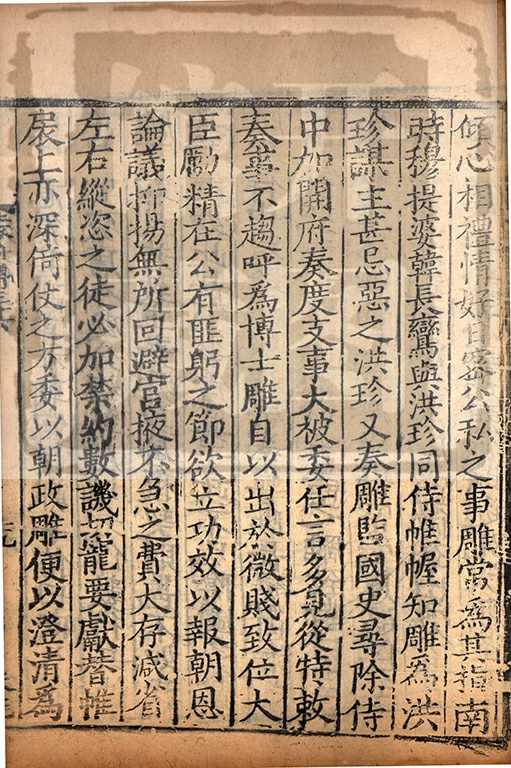 傾心相禮情好日密公私之事雕常為其指南
時穆提婆韓長鸞與洪珍同侍帷幄知雕為洪
珍謀主甚忌惡之洪珍又奏雕監國史尋除侍
中加開府奏度支事大被委任言多見從特敕
奏事不趨呼為博士雕自以出於微賤致位大
臣勵精在公有匪躬之節欲立功效以報朝恩
論議抑揚無所回避宮掖不急之費大存減省
左右縱恣之徒必加禁約數譏切寵要獻替帷
扆上亦深倚仗之方委以朝政雕便以澄清為